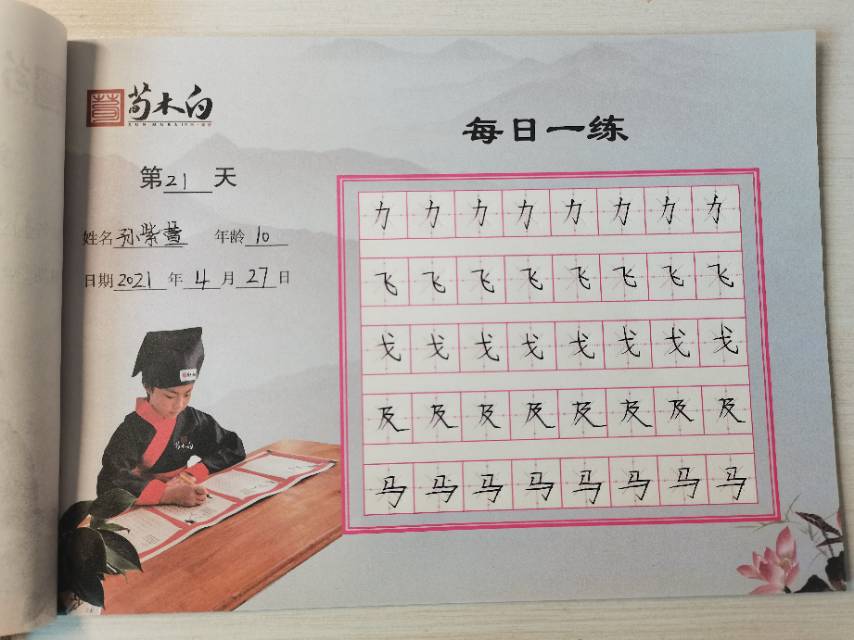 荀木白
每日一练
第21天
姓名孙紫萱 年龄10
日期2021年4月27日
力力力力力力力力
飞飞飞飞飞飞飞飞
戈戈戈戈戈戈戈戈
及及及及及及及及
马马马马马马马马